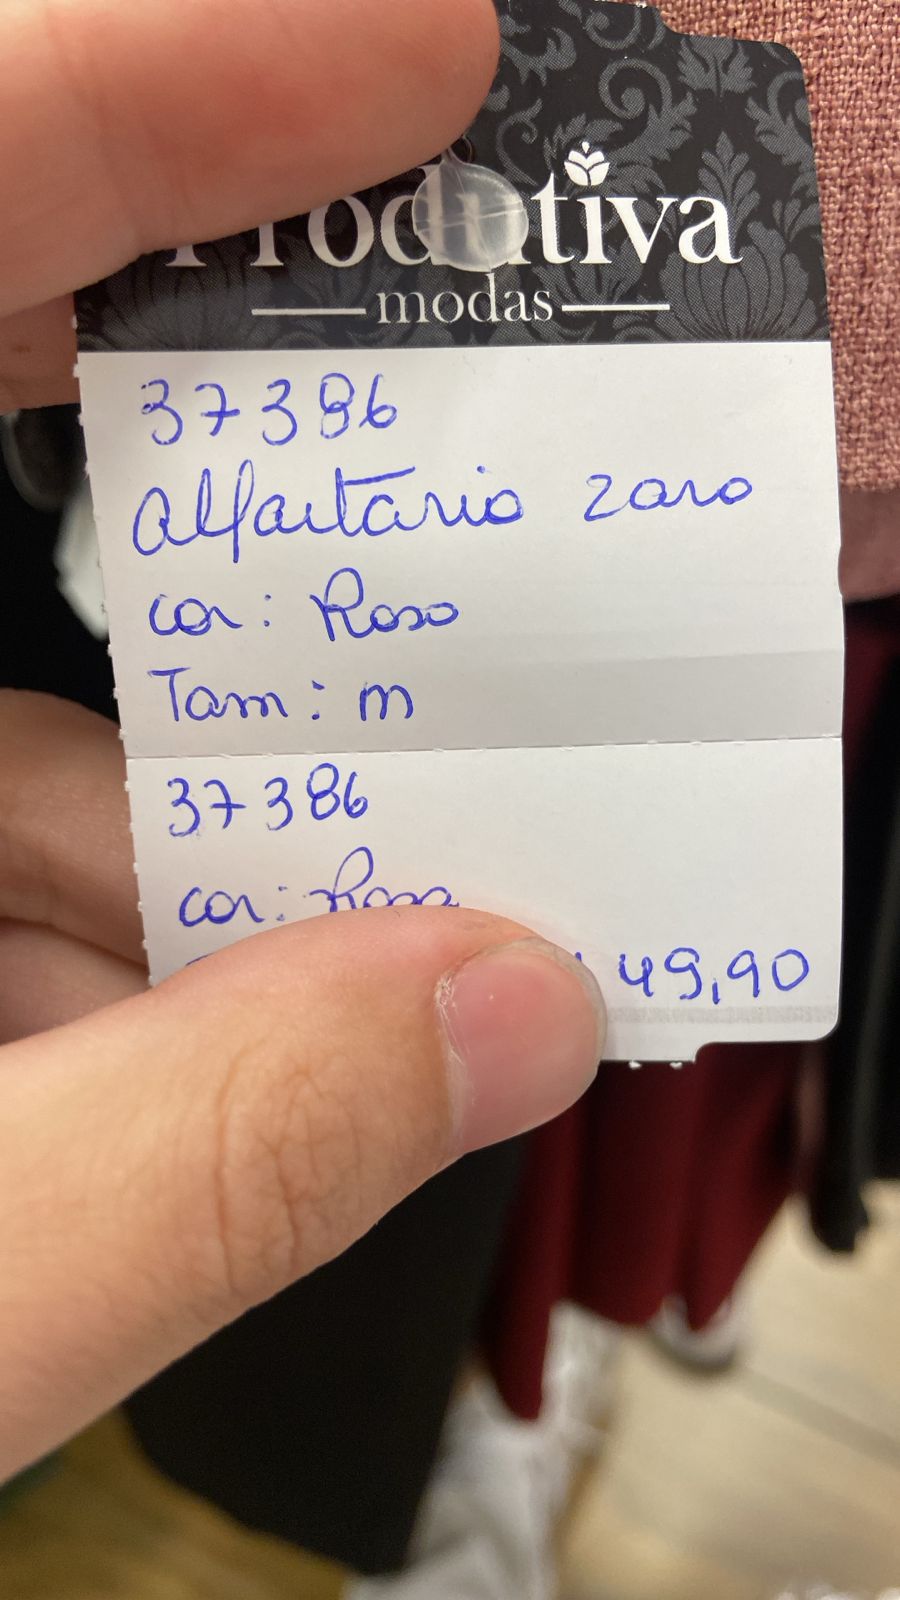 Produtiva
modas
37386
Alfaitaria zara
cor: Rosa
Tam: m
37386
cor: Rosa
49,90